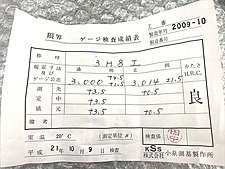 工番 2009-10
製造年月
製造番号
限界 ゲージ検査成績表
呼称 3H8I
規定寸法及び
ゲージ公差
3,000 +5.5 +1.5
3,014 ±1.5
かたさ
H.R.C.
測定 先 +3.5 +0.5
中 +3.5
元 +3.5 +0.5
良
備考
室温 20°C (測定単位 μ)
検査係
平成 21年 10月 9日 検査
KSS
株式会社 小泉測基製作所